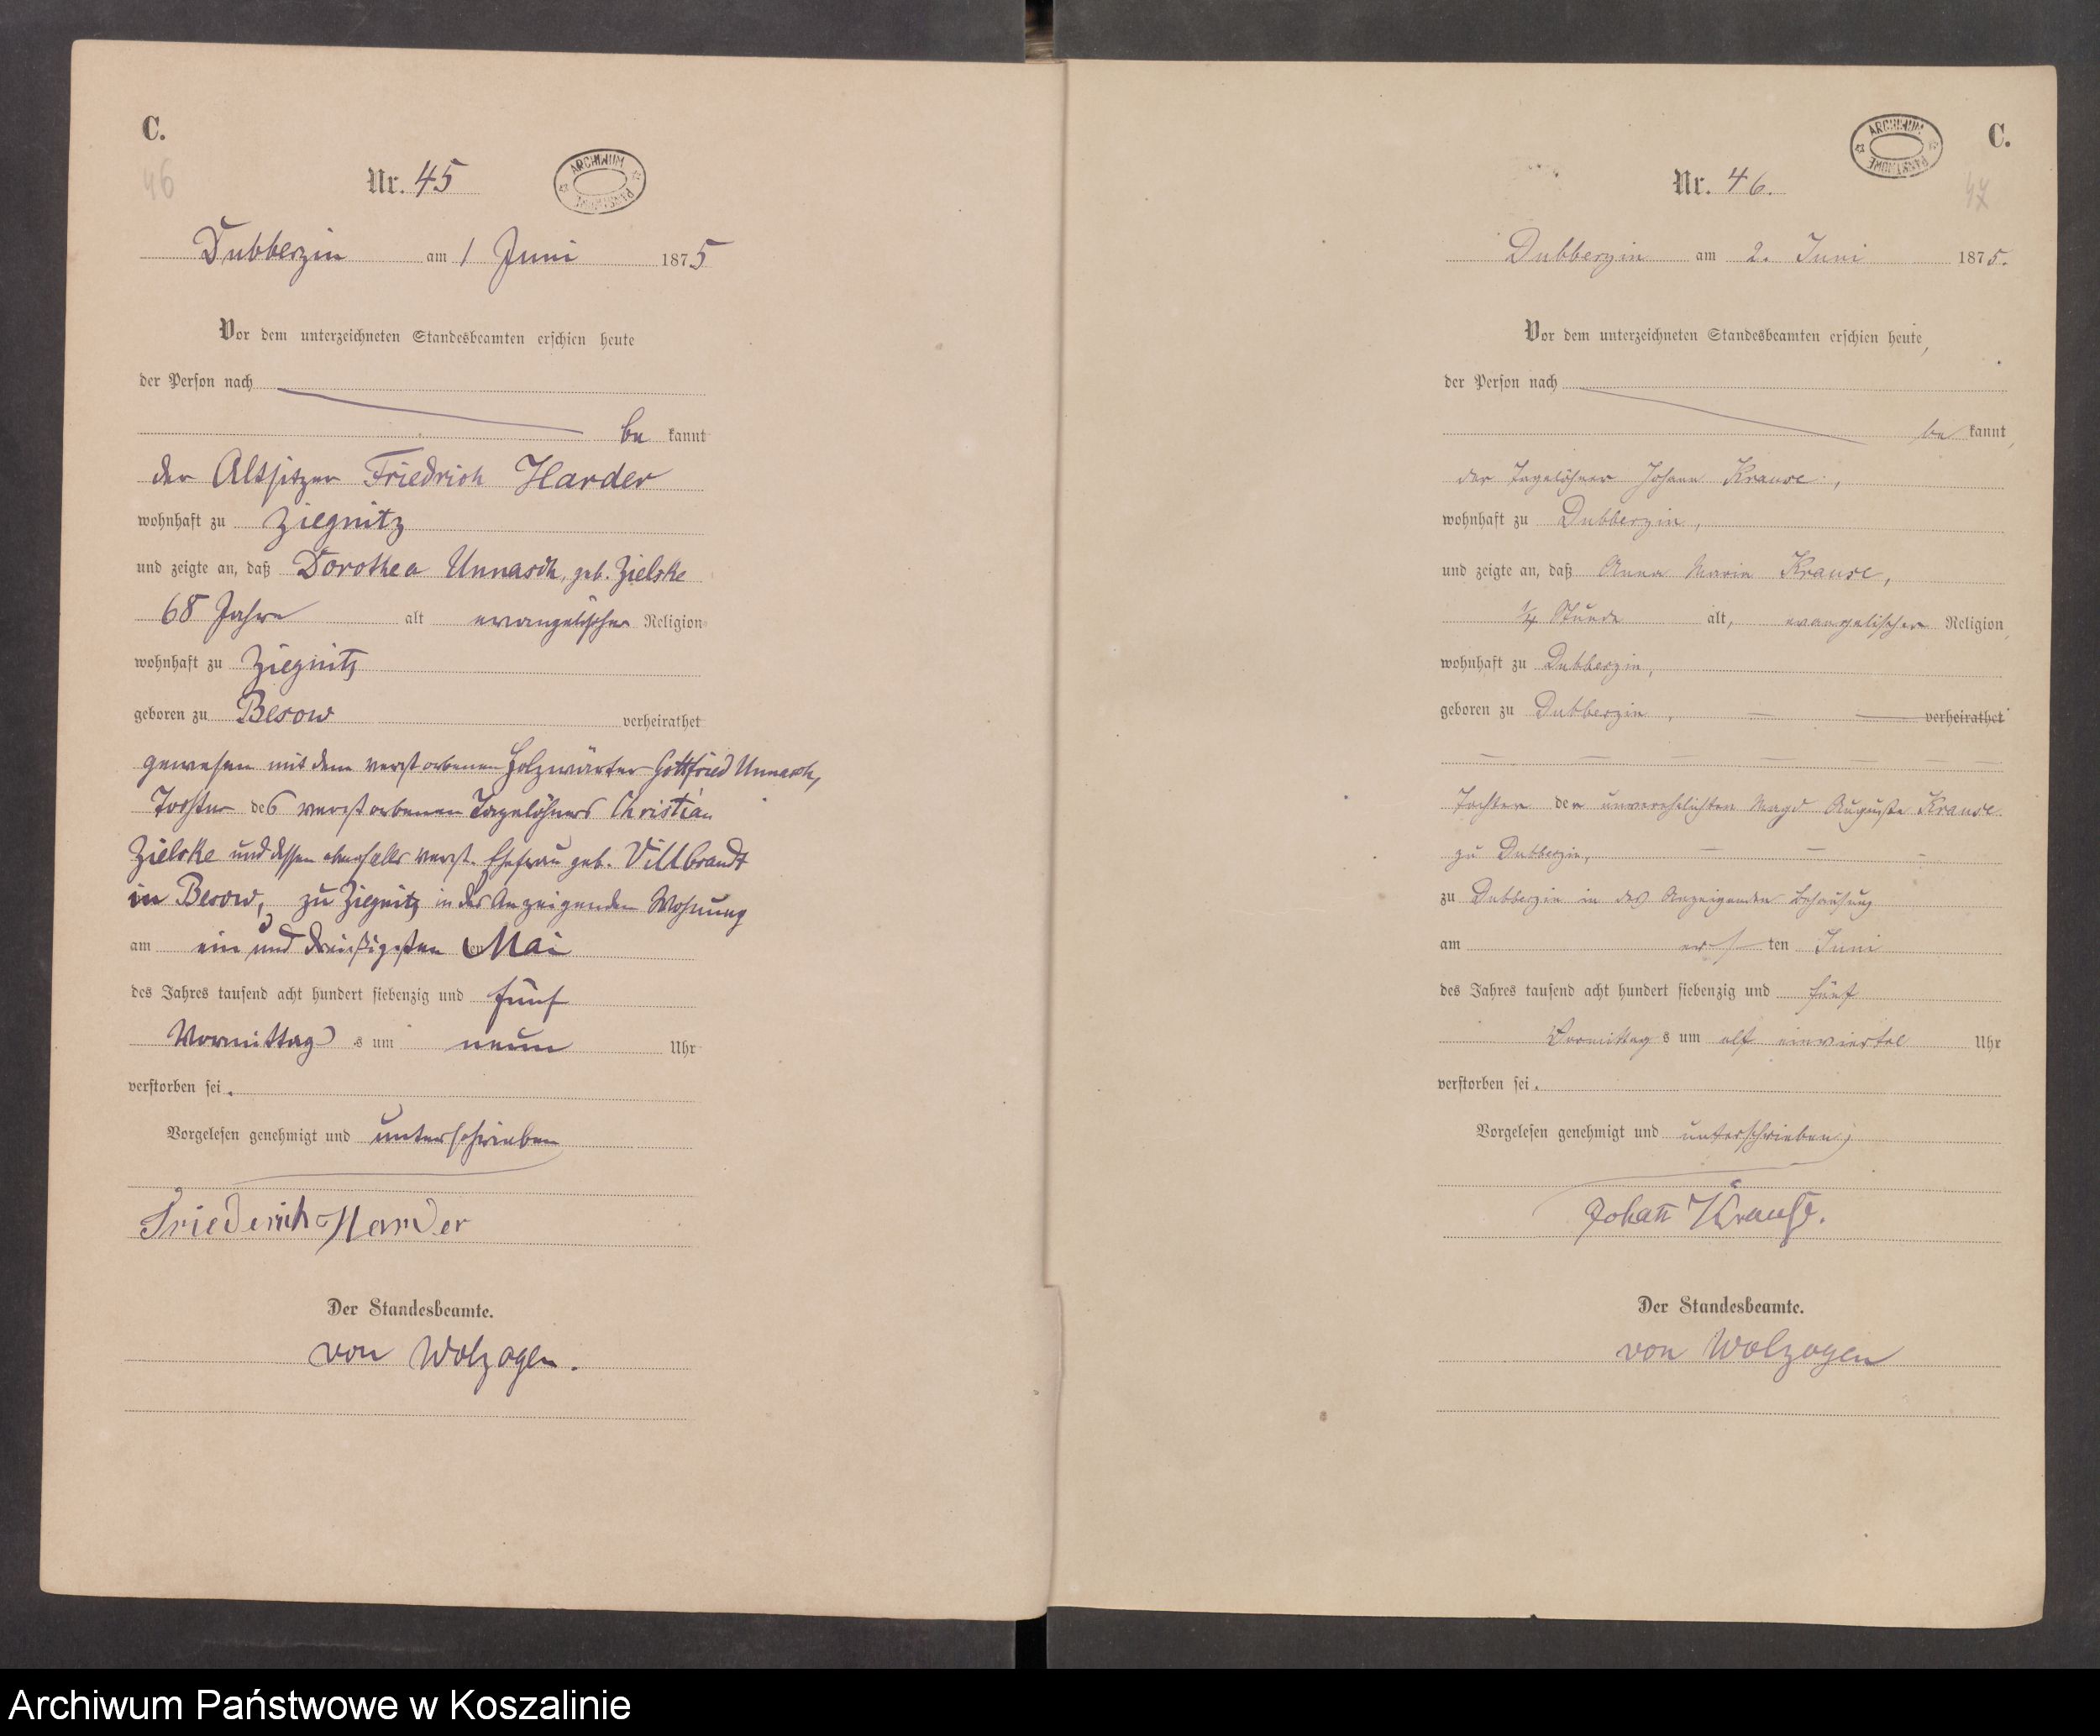 C.
46
Nr. 45
ARCHIWUM PAŃSTWOWE
Dubberzin am 1 Juni 1875
Vor dem unterzeichneten Standesbeamten erschien heute
der Person nach
be kannt
der Altsitzer Friedrich Harder
wohnhaft zu Ziegnitz
und zeigte an, daß Dorothea Unnasch, geb. Zielske
68 Jahre alt evangelischer Religion
wohnhaft zu Ziegnitz
geboren zu Besow verheirathet
gewesen mit dem verstorbenen Holzwärter Gottfried Unnasch,
Tochter des verstorbenen Tagelöhners Christian
Zielske und dessen ebenfalls verst. Ehefrau geb. Villbrandt
in Besow, zu Ziegnitz in des Anzeigenden Wohnung
am ein und dreißigsten ten Mai
des Jahres tausend acht hundert siebenzig und fünf
Vormittag s um neun Uhr
verstorben sei.
Vorgelesen genehmigt und unterschrieben
Friederich Harder
Der Standesbeamte.
von Wolzogen.
C.
47
Nr. 46.
ARCHIWUM PAŃSTWOWE
Dubberzin am 2. Juni 1875.
Vor dem unterzeichneten Standesbeamten erschien heute,
der Person nach
be kannt,
der Tagelöhner Johann Krause,
wohnhaft zu Dubberzin,
und zeigte an, daß Anna Marie Krause,
1/4 Stunde alt, evangelischer Religion,
wohnhaft zu Dubberzin,
geboren zu Dubberzin, verheirathet
Tochter der unverehelichten Magd Auguste Krause
zu Dubberzin,
zu Dubberzin in des Anzeigenden Behausung
am ers ten Juni
des Jahres tausend acht hundert siebenzig und fünf
Vormittag s um elf einviertel Uhr
verstorben sei.
Vorgelesen genehmigt und unterschrieben;
Johan Krause.
Der Standesbeamte.
von Wolzogen
Archiwum Państwowe w Koszalinie